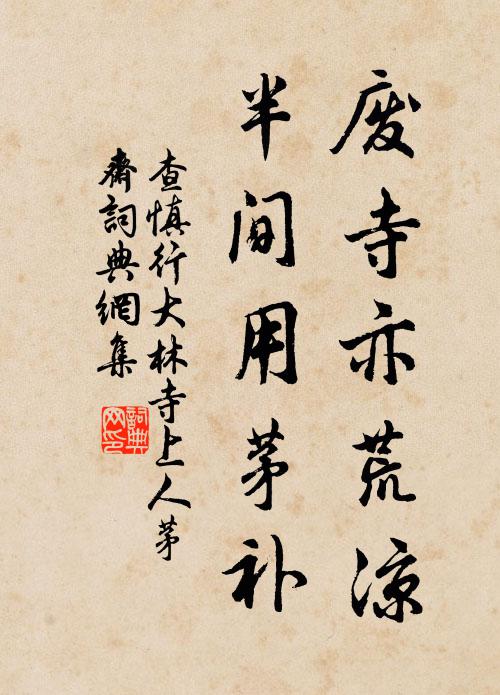 废寺亦荒凉
半间用茅补
查慎行大林寺上人茅
斋詞典網集
詞典网印